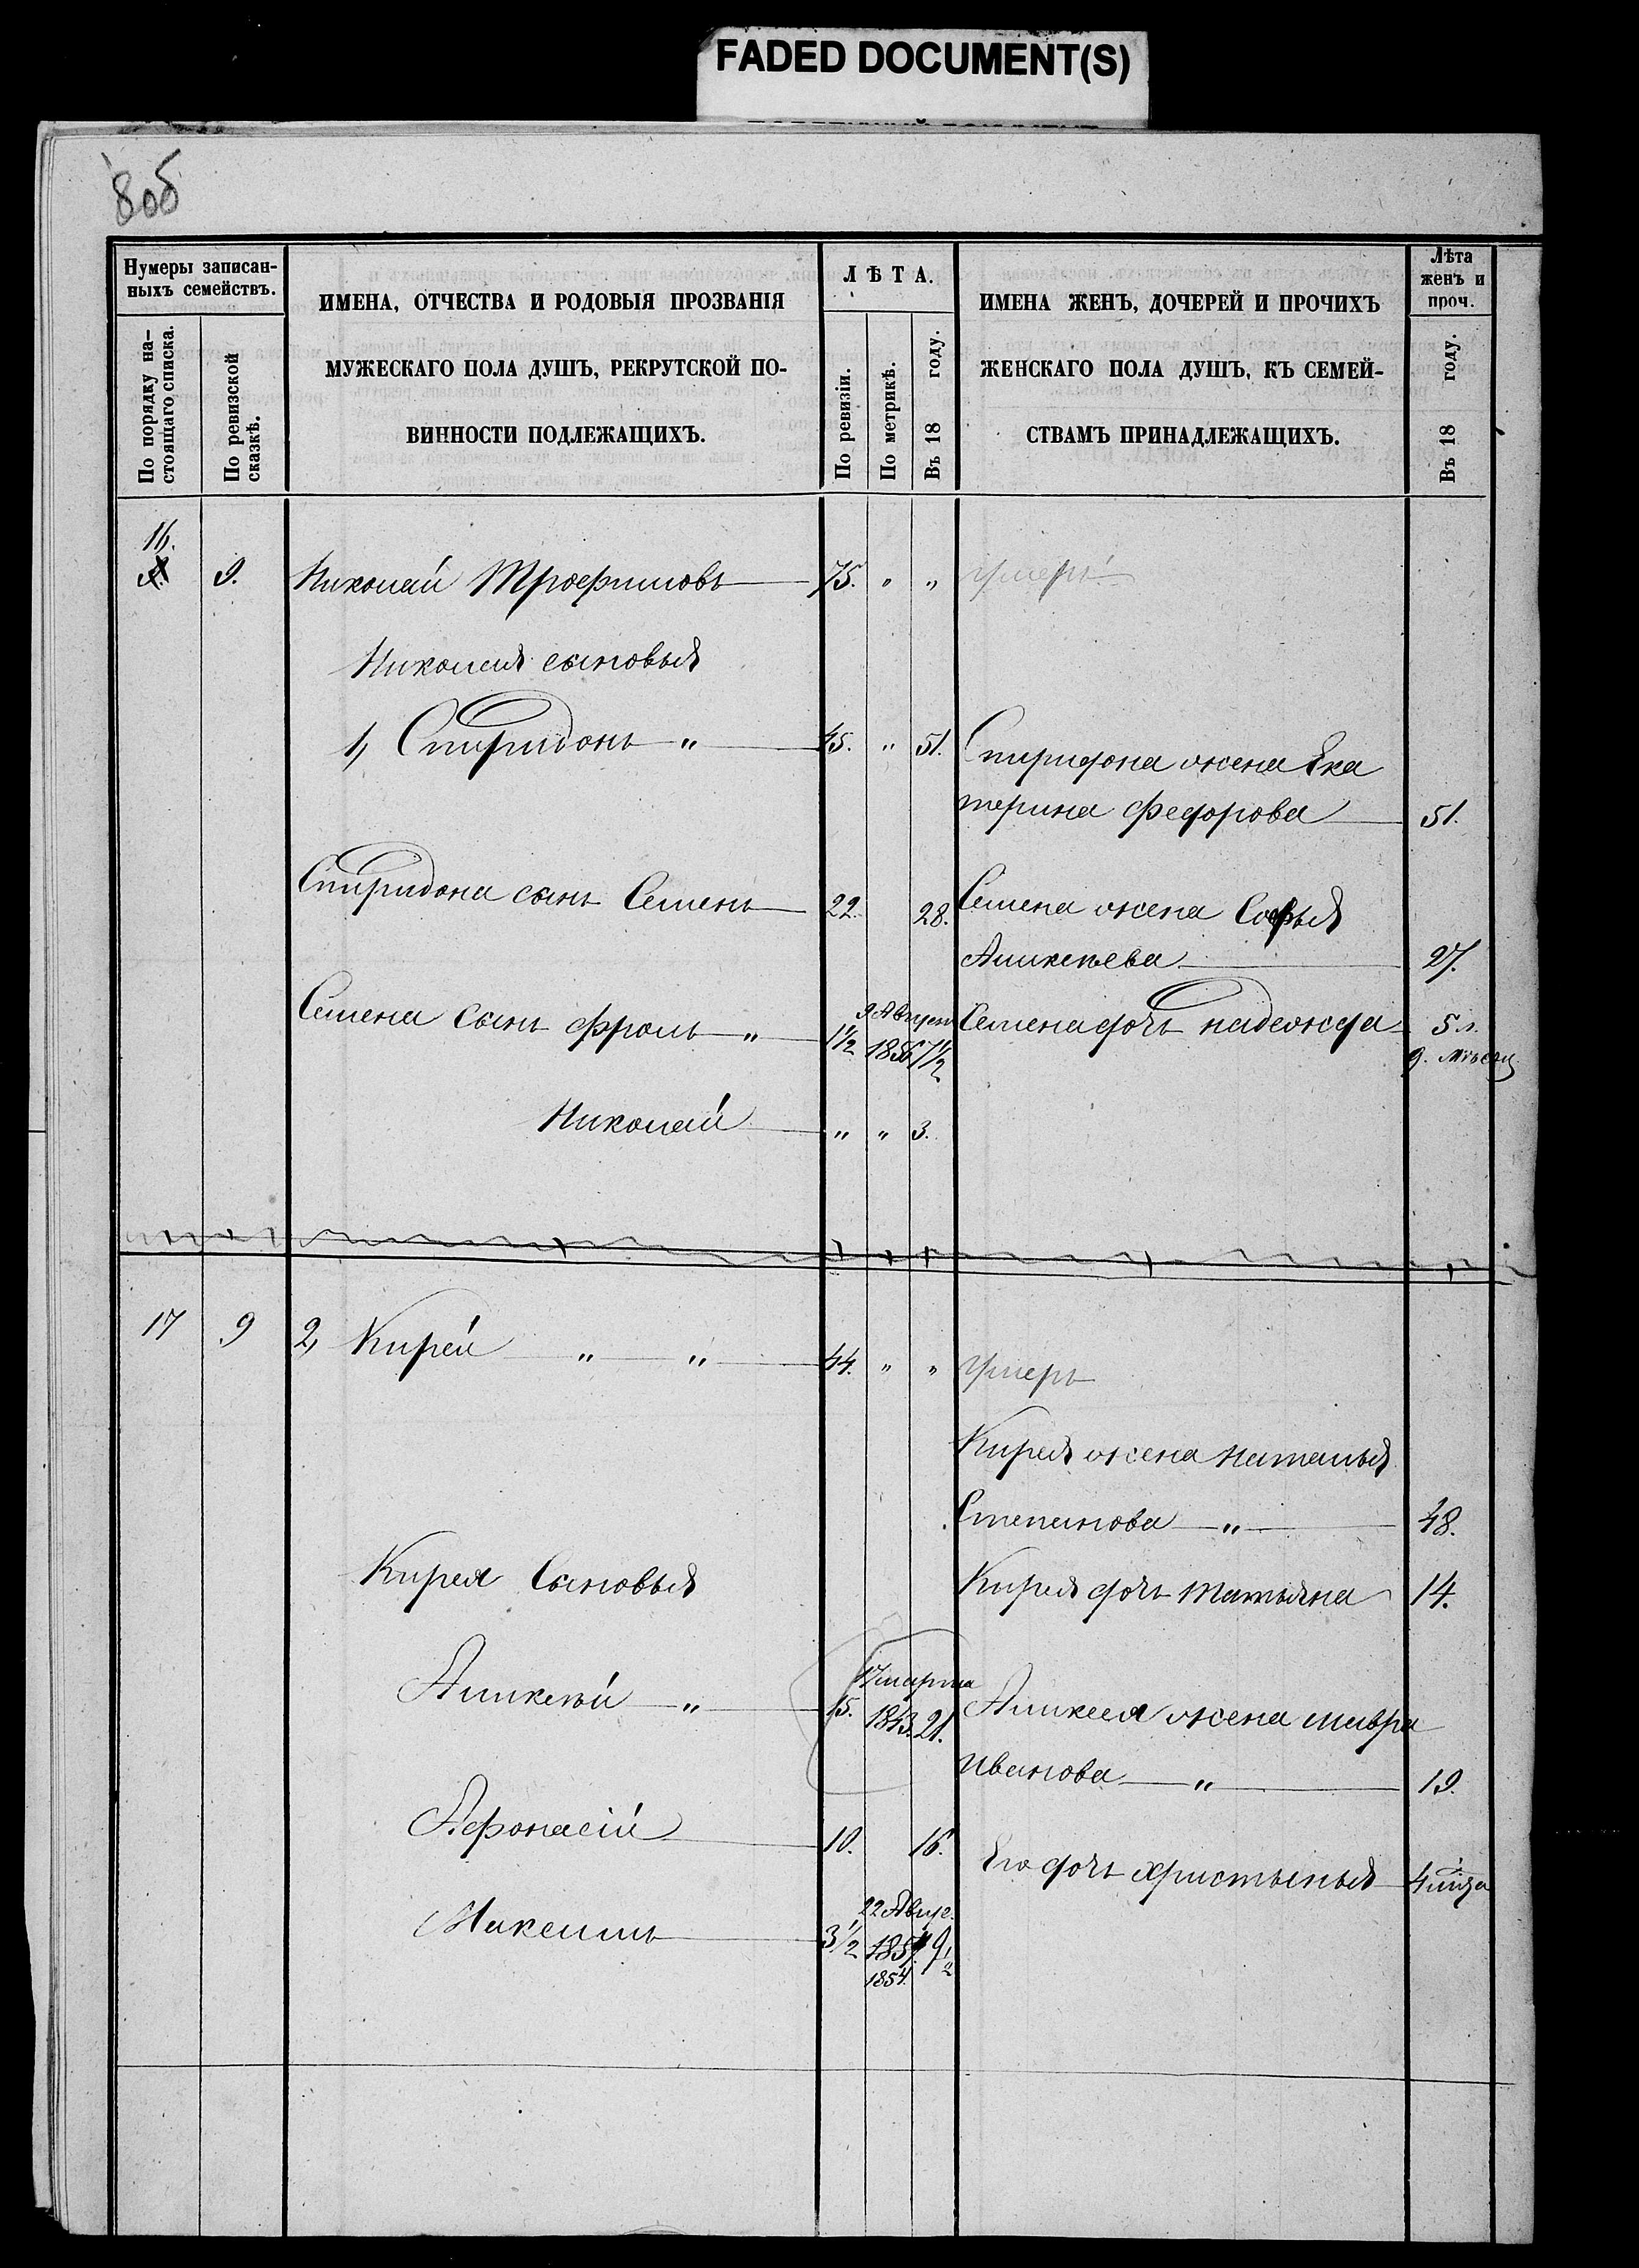 FADED DOCUMENT(S)
8об
Нумеры записан-
ныхъ семействъ.
По порядку на-
стоящаго списка.
По ревизской
сказкѣ.
ИМЕНА, ОТЧЕСТВА И РОДОВЫЯ ПРОЗВАНІЯ
МУЖЕСКАГО ПОЛА ДУШЪ, РЕКРУТСКОЙ ПО-
ВИННОСТИ ПОДЛЕЖАЩИХЪ.
ЛѢТА.
По ревизіи.
По метрикѣ.
Въ 18 году.
ИМЕНА ЖЕНЪ, ДОЧЕРЕЙ И ПРОЧИХЪ
ЖЕНСКАГО ПОЛА ДУШЪ, КЪ СЕМЕЙ-
СТВАМЪ ПРИНАДЛЕЖАЩИХЪ.
Лѣта
женъ и
проч.
Въ 18 году.
16.
9. Николай Трофимовъ 75. " " умеръ
Николая сыновья
1, Спиридонъ " 45. " 51. Спиридона жена Ека
терина Федорова 51.
Спиридона сынъ Семенъ 22. 28. Семена жена Софья
Аликѣева 27.
Семена сынъ Фролъ " 1½ 9 Август 1856 7½ Семена дочь надежда 5 л.
9. мѣсяц
Николай " " 3.
17 9 2, Кирей " " 44. " " умеръ
Кирея жена наталья
Степанова " 48.
Кирея Сыновья Кирея дочь татьяна 14.
Аликѣй " 15. 17 марта 1843. 21. Аликея жена мавра
Иванова " 19.
Афонасій 10. 16.
Его дочь христинья 4 м
Максимъ 3½ 22 Авгус. 1854 9½
1854.